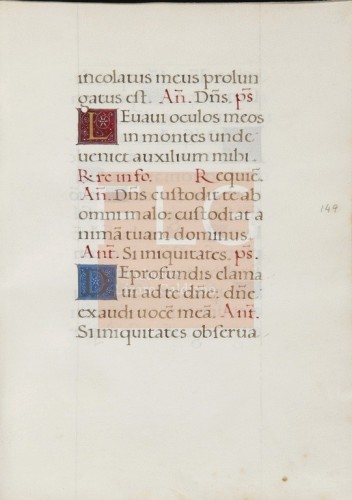 incolatus meus prolun
gatus est. Añ. Dñs. ps
Leuaui oculos meos
in montes unde
ueniet auxilium mihi.
R re in fo. R equiē.
Añ. Dñs custodit te ab
omni malo: custodiat a
nimā tuam dominus.
Ant. Si iniquitates. ps.
De profundis clama
ui ad te dñe: dñe
exaudi uocē meā. Ant.
Si iniquitates obserua
149